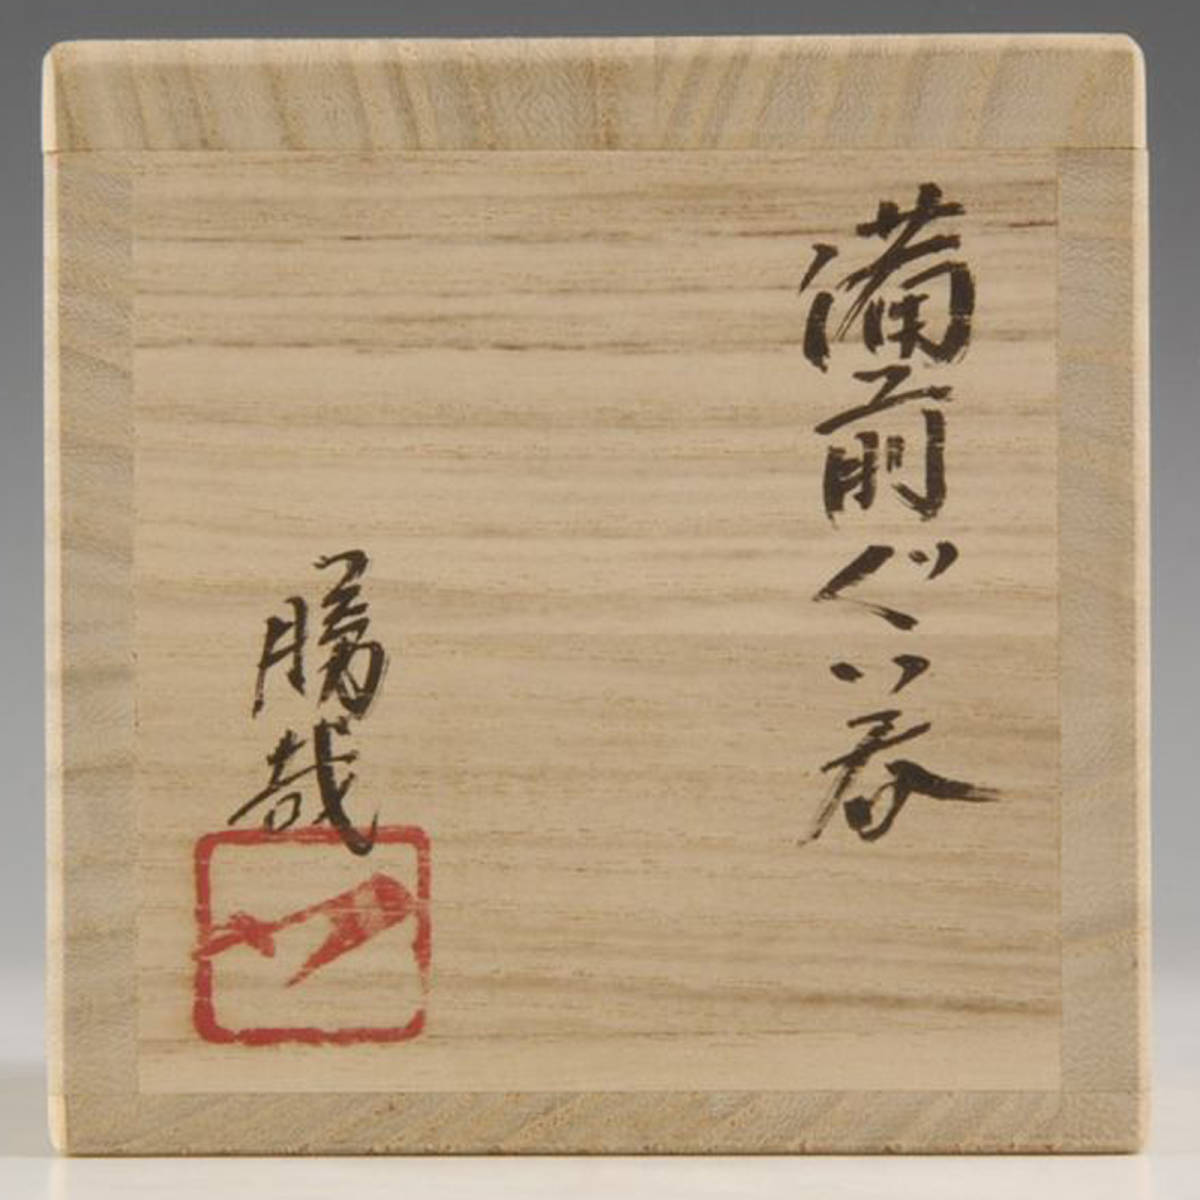 備前ぐい呑
勝哉